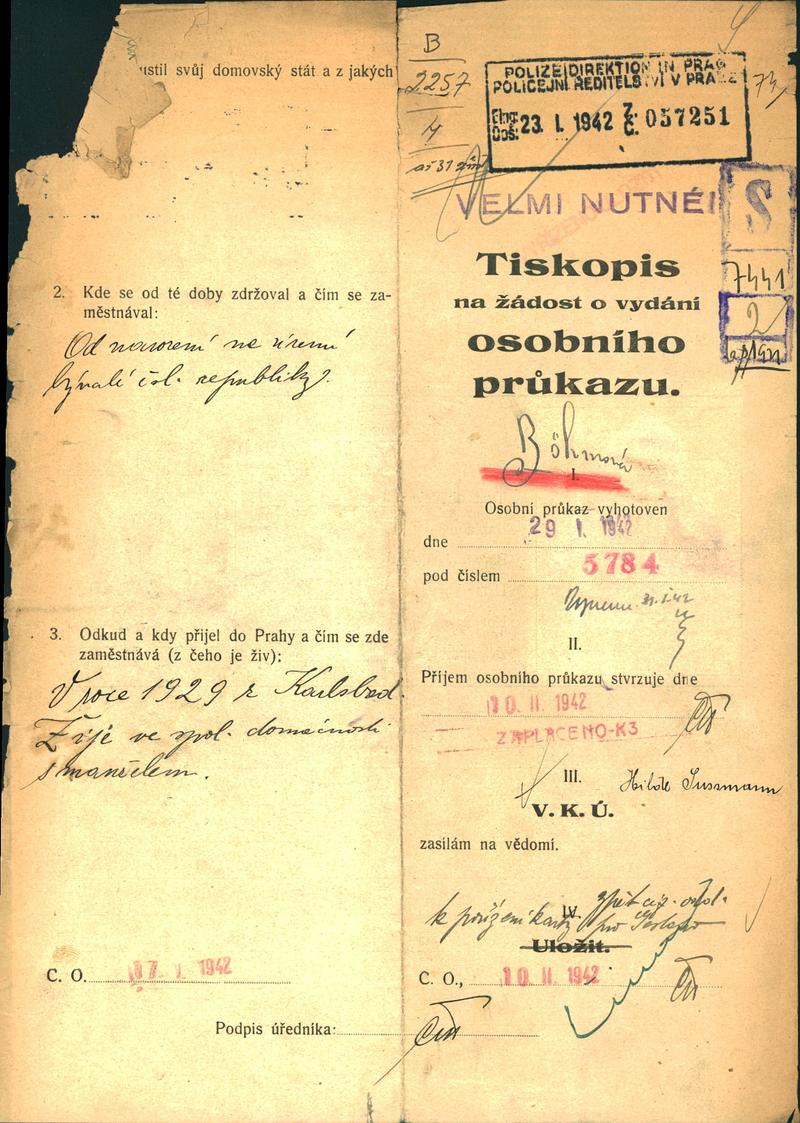 ustil svůj domovský stát a z jakých
2. Kde se od té doby zdržoval a čím se za-
městnával:
Od narození na území
bývalé čsl. republiky.
3. Odkud a kdy přijel do Prahy a čím se zde
zaměstnává (z čeho je živ):
V roce 1929 z Karlsbad.
Žije ve spol. domácnosti
s manželem.
C. O. 17 I. 1942
Podpis úředníka:
B
2257
4
POLIZEIDIREKTION IN PRAG
POLICEJNÍ ŘEDITELSTVÍ V PRAZE
Eing:
Doš: 23. I. 1942 Z. Č. 057251
VELMI NUTNÉ!
S
7441
2
Tiskopis
na žádost o vydání
osobního
průkazu.
Böhmová
I.
Osobní průkaz vyhotoven
dne 29 I. 1942
pod číslem 5784
II.
Příjem osobního průkazu stvrzuje dne
10. II. 1942
ZAPLACENO-K3
III. Hilde Sussmann
V. K. Ú.
zasílám na vědomí.
IV.
Uložit.
C. O., 10 II. 1942